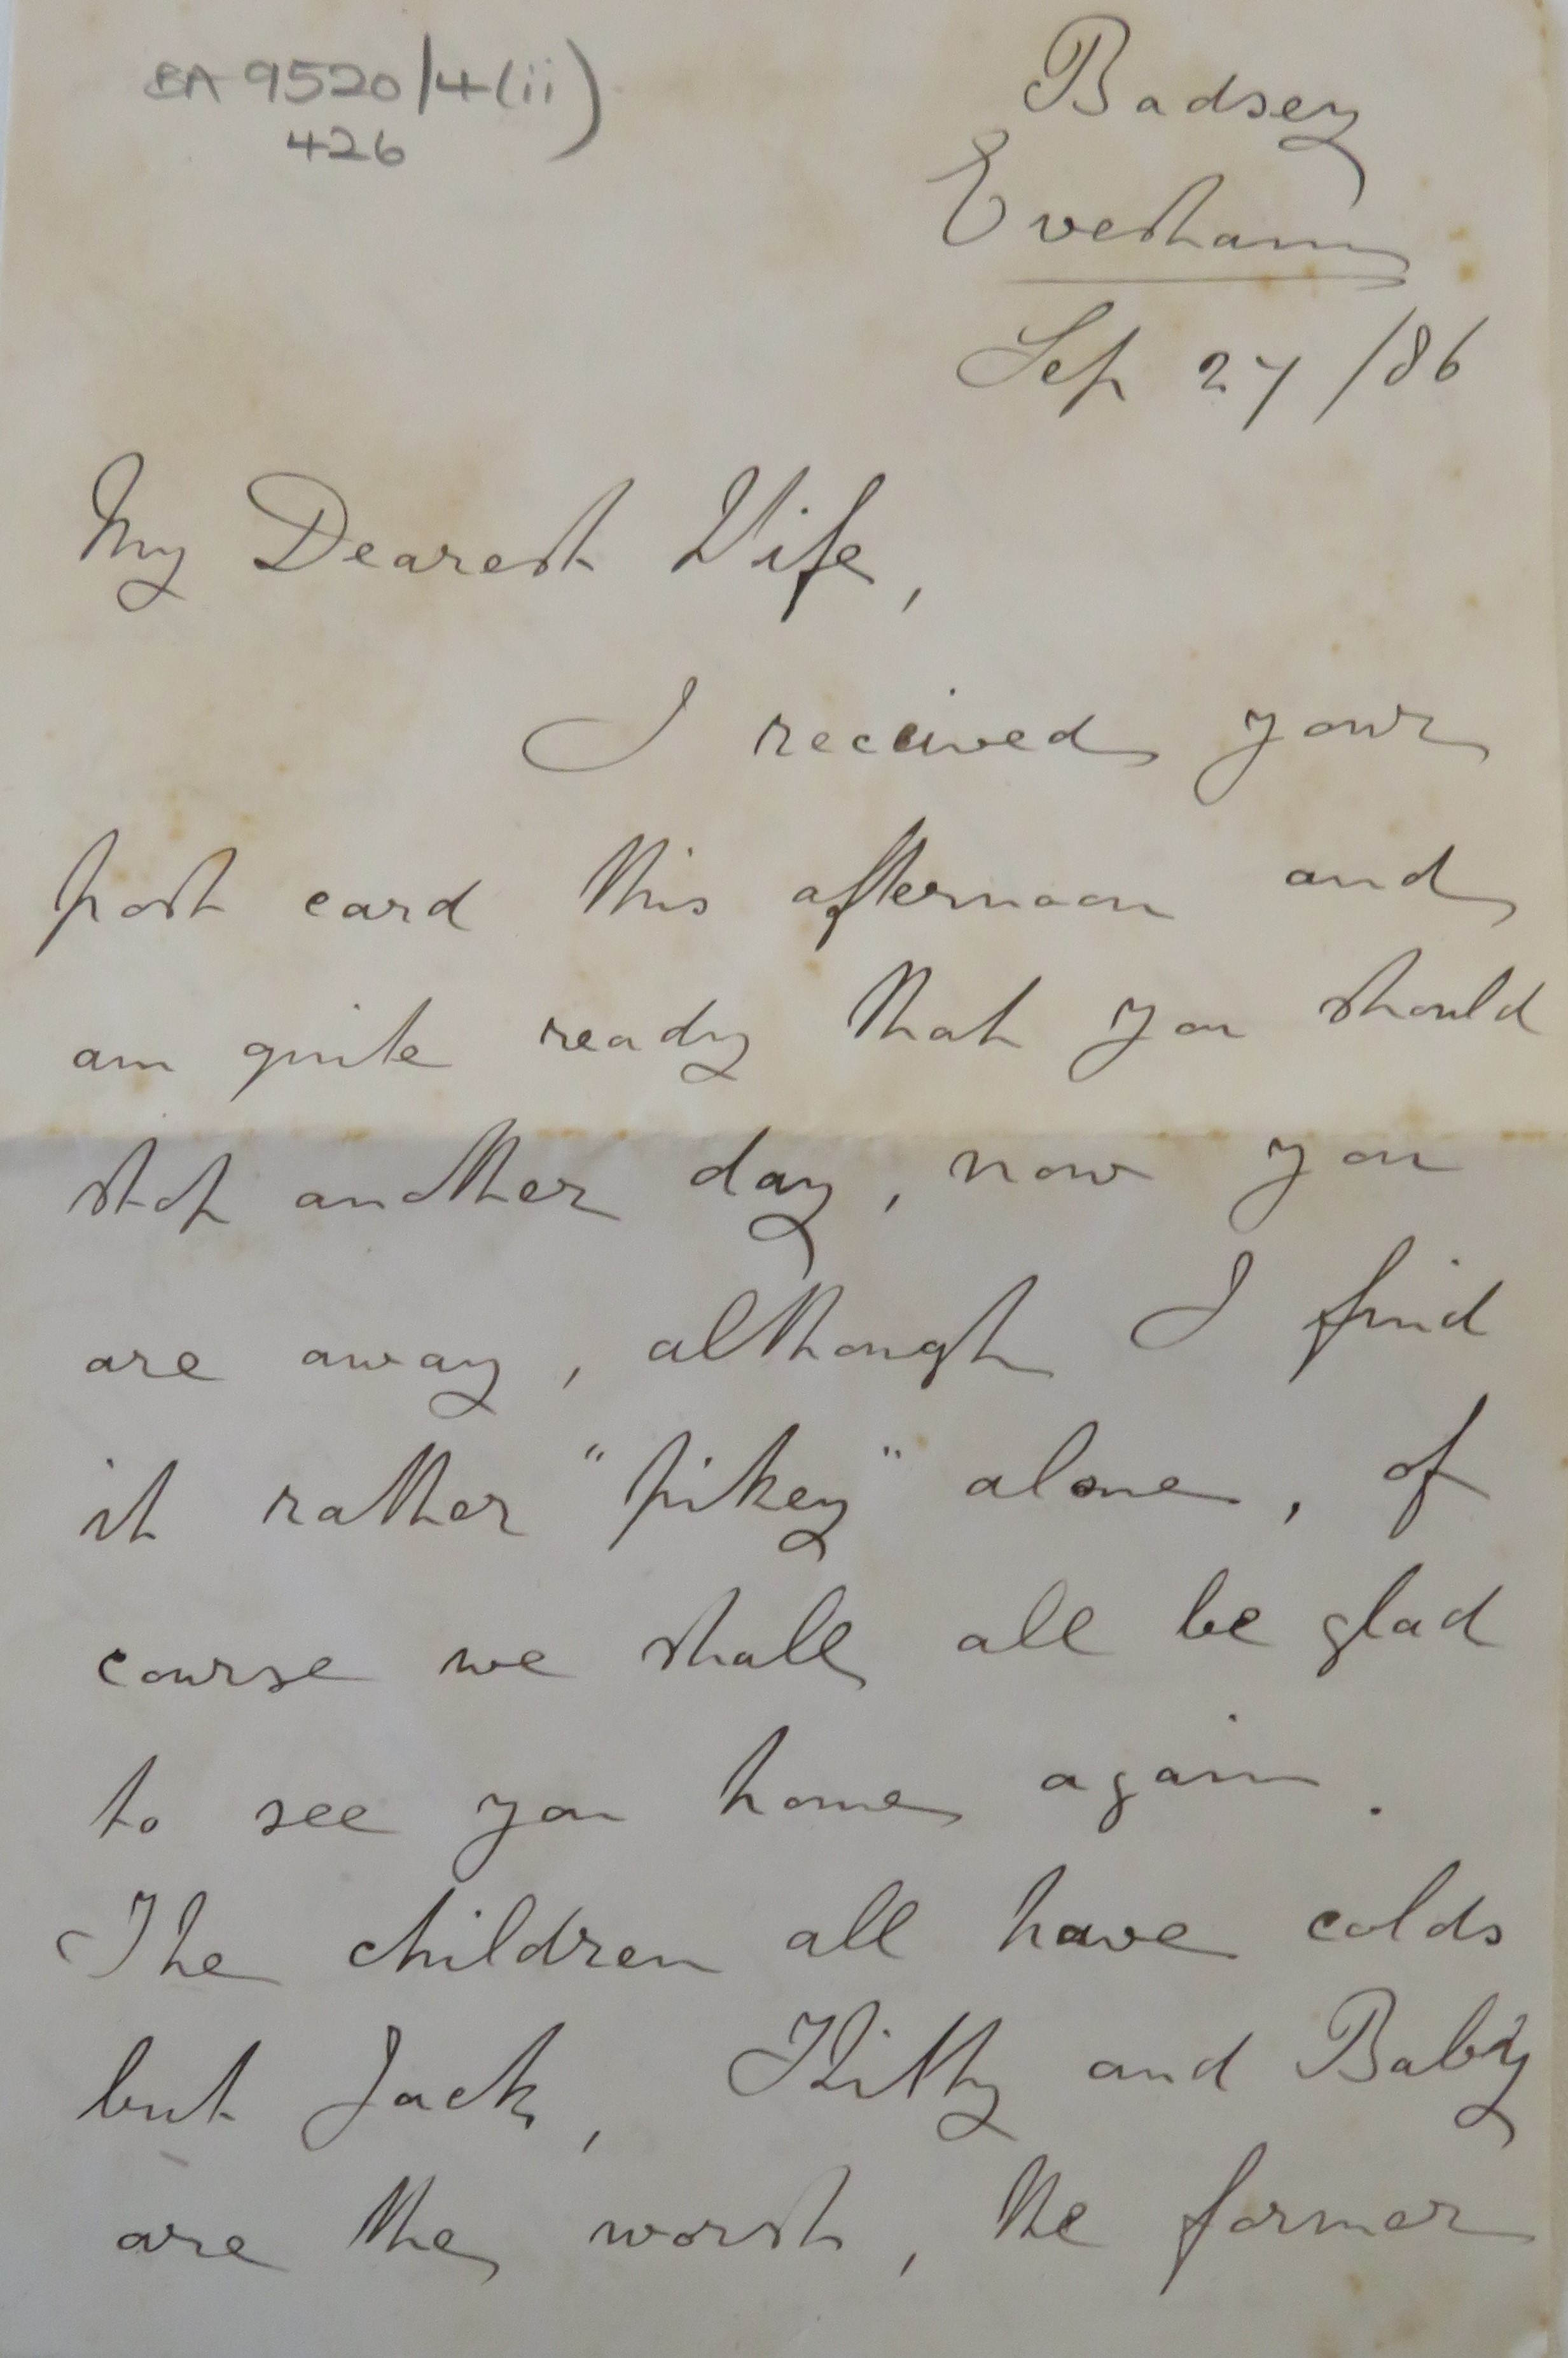 BA 9520/4(ii)
426
Badsey
Evesham
Sep 27/86
My Dearest Wife,
I received your
post card this afternoon and
am quite ready that you should
stop another day, now you
are away, although I find
it rather "pikey" alone, of
course we shall all be glad
to see you home again.
The children all have colds
but Jack, Kitty and Baby
are the worst, the former